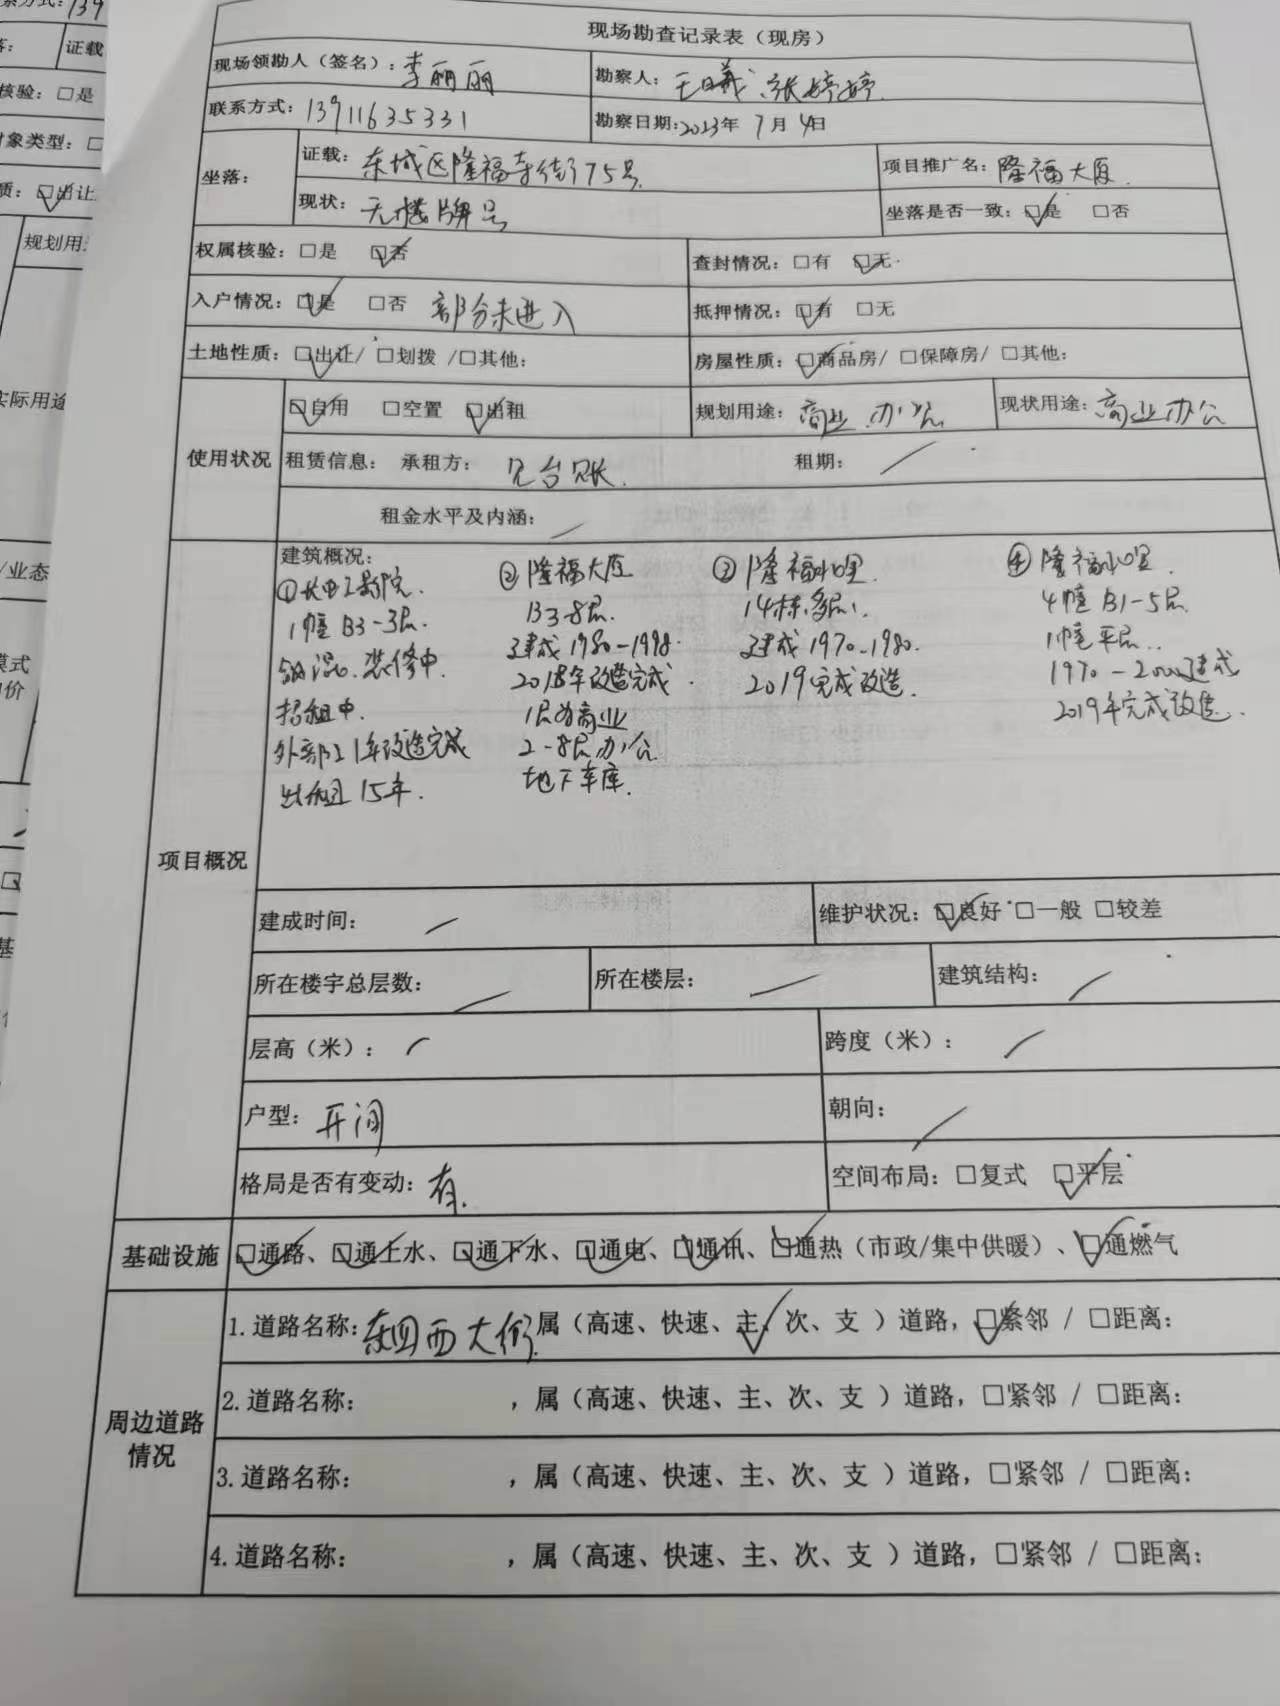 现场勘查记录表（现房）
现场领勘人（签名）：李丽丽 勘察人：王曦、张婷婷
联系方式：13911635331 勘察日期：2023年 7月 4日
坐落： 证载：东城区隆福寺街75号 项目推广名：隆福大厦
现状：无楼牌号 坐落是否一致：☑是 □否
权属核验：□是 ☑否 查封情况：□有 ☑无
入户情况：☑是 □否 部分未进入 抵押情况：☑有 □无
土地性质：☑出让/ □划拨 /□其他： 房屋性质：☑商品房/ □保障房/ □其他：
使用状况 ☑自用 □空置 ☑出租 规划用途：商业 办公 现状用途：商业办公
租赁信息： 承租方：见台账. 租期：/
租金水平及内涵：/
项目概况
建筑概况：
① 
1幢 B3-3层.
钢混.装修中.
招租中.
外部21年改造完成
出租15年.
②隆福大厦
B3-8层.
建成1980-1998.
2018年改造完成.
1层为商业
2-8层办公
地下车库.
③隆福北里.
14栋多层.
建成1970-1980.
2019完成改造.
④隆福北里.
4幢 B1-5层
1幢平层..
1970-2000建成
2019年完成改造.
建成时间：/ 维护状况：☑良好 □一般 □较差
所在楼宇总层数：/ 所在楼层：/ 建筑结构：/
层高（米）：/ 跨度（米）：/
户型：开间 朝向：/
格局是否有变动：有. 空间布局：□复式 ☑平层
基础设施 ☑通路、☑通上水、☑通下水、☑通电、☑通讯、☑通热（市政/集中供暖）、☑通燃气
周边道路情况
1.道路名称：东四西大街，属（高速、快速、主✓、次、支 ）道路，☑紧邻 / □距离：
2.道路名称： ，属（高速、快速、主、次、支 ）道路，□紧邻 / □距离：
3.道路名称： ，属（高速、快速、主、次、支 ）道路，□紧邻 / □距离：
4.道路名称： ，属（高速、快速、主、次、支 ）道路，□紧邻 / □距离：